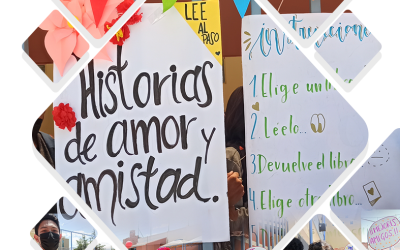 LEE
AL
PASO
Historias
de amor y
amistad.
Instrucciones
1. Elige un libro
2. Léelo...
3. Devuelve el libro
4. Elige otro
5.